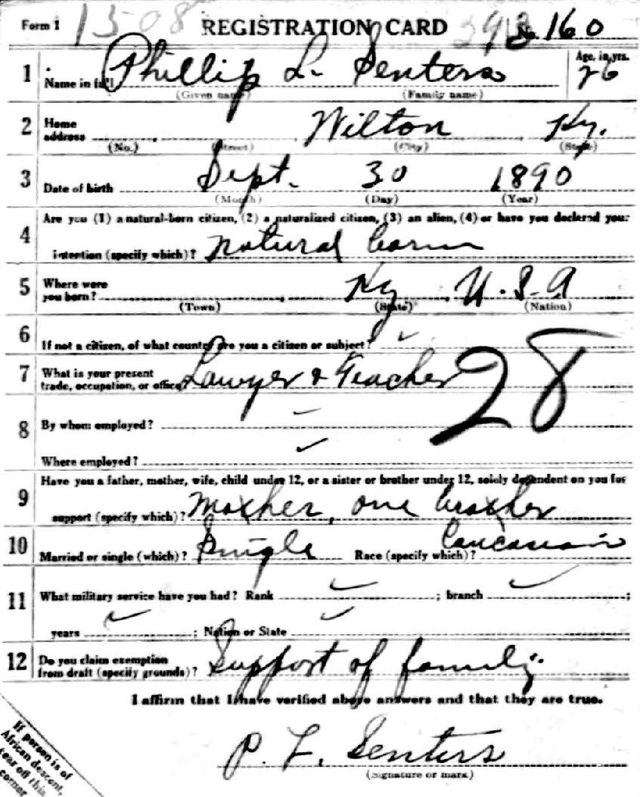 Form 1 1508 REGISTRATION CARD 393 No. 160
1 Name in full Phillip L. Senters Age, in yrs. 26
(Given name) (Family name)
2 Home address Wilton Ky.
(No.) (Street) (City) (State)
3 Date of birth Sept. 30 1890
(Month) (Day) (Year)
4 Are you (1) a natural-born citizen, (2) a naturalized citizen, (3) an alien, (4) or have you declared your
intention (specify which)? natural born
5 Where were you born? Ky U.S.A
(Town) (State) (Nation)
6 If not a citizen, of what country are you a citizen or subject?
7 What is your present trade, occupation, or office? Lawyer & Teacher
28
8 By whom employed?
Where employed?
9 Have you a father, mother, wife, child under 12, or a sister or brother under 12, solely dependent on you for
support (specify which)? Mother, one brother
10 Married or single (which)? Single Race (specify which)? Caucasian
11 What military service have you had? Rank ; branch ;
years ; Nation or State
12 Do you claim exemption from draft (specify grounds)? Support of family.
I affirm that I have verified above answers and that they are true.
P. L. Senters
(Signature or mark)
If person is of
African descent,
tear off this
corner